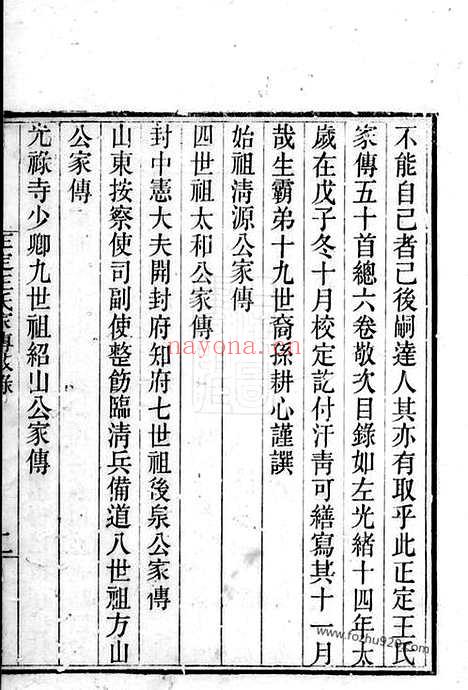 不能自已者已後嗣達人其亦有取乎此正定王氏
家傳五十首總六卷敬次目錄如左光緒十四年太
歲在戊子冬十月校定訖付汗靑可繕寫其十一月
哉生霸弟十九世裔孫耕心謹譔
始祖清源公家傳
四世祖太和公家傳
封中憲大夫開封府知府七世祖後泉公家傳
山東按察使司副使整飭臨清兵備道八世祖方山
公家傳
光祿寺少卿九世祖紹山公家傳
正定王氏家傳敘錄
二
nayona.cn
www.fozhu920.com